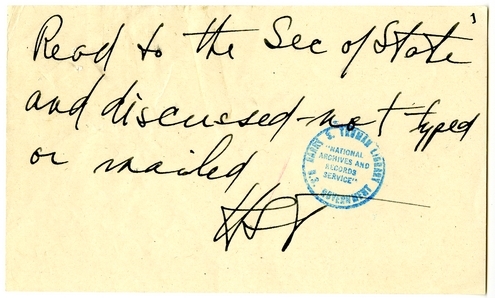 Read to the Sec of State
and discussed - not typed
or mailed
HST
HARRY S. TRUMAN LIBRARY
"NATIONAL
ARCHIVES AND
RECORDS
SERVICE"
U.S. GOVERNMENT